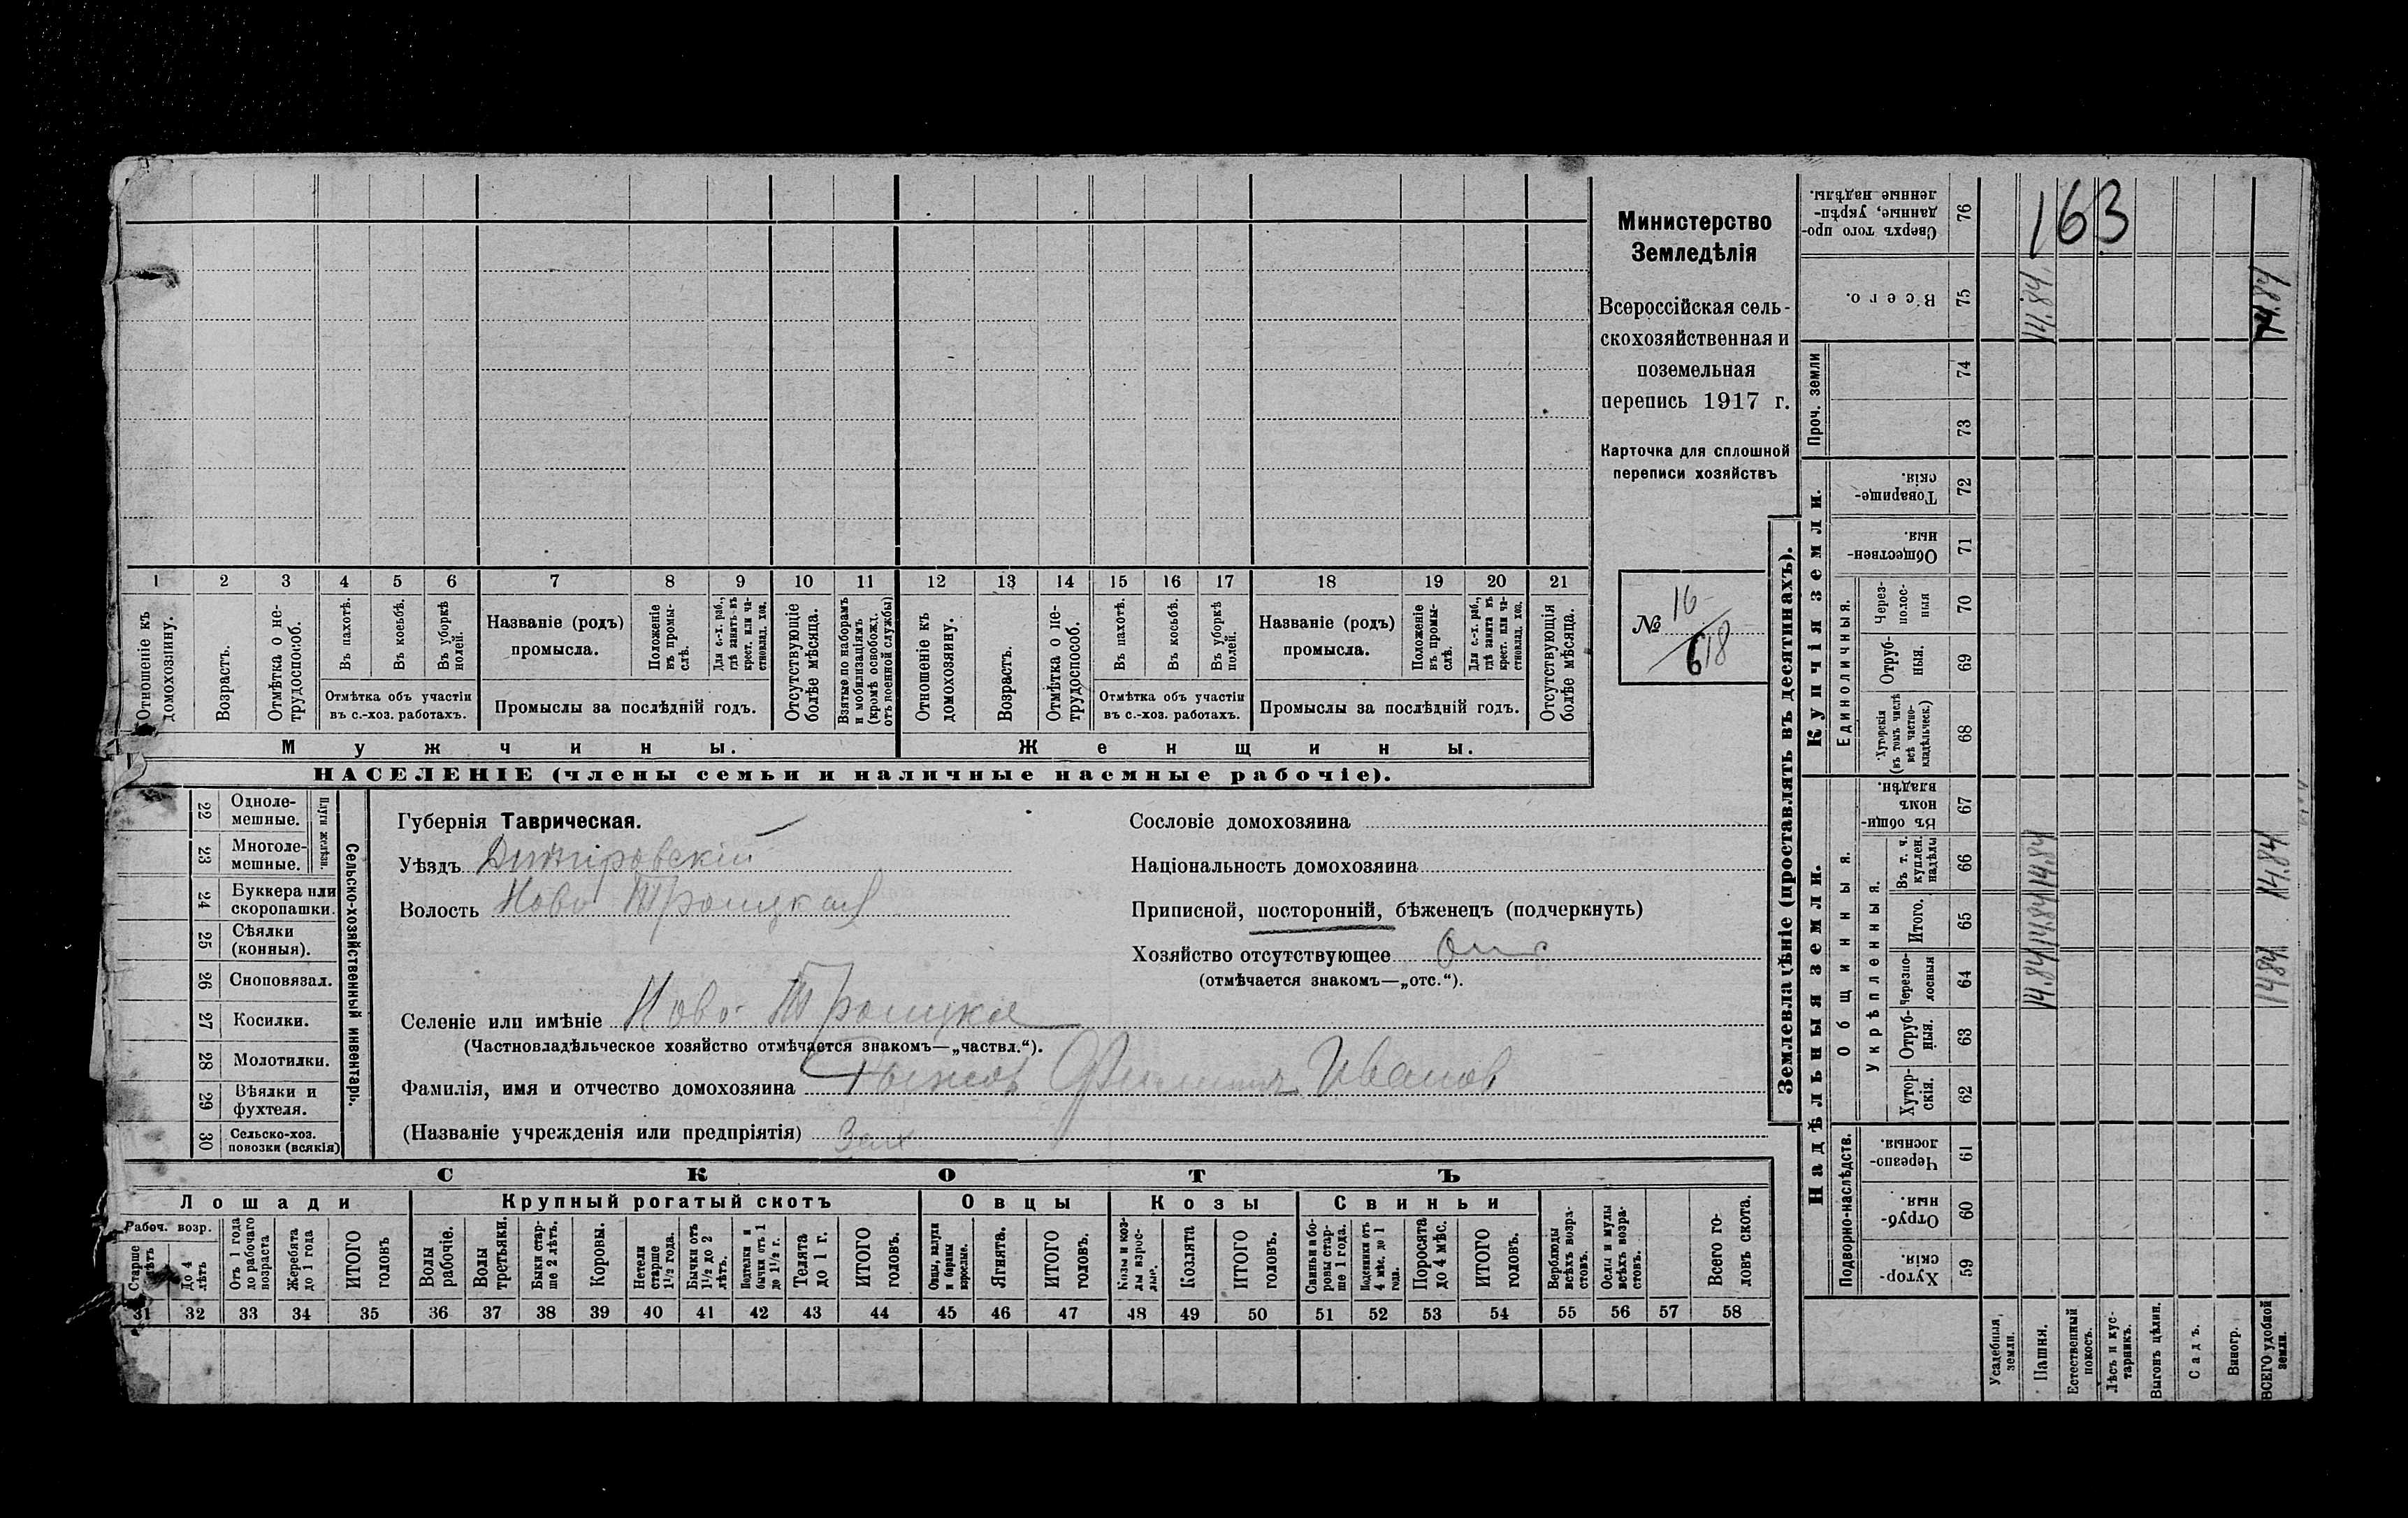 Министерство
Земледѣлія
Всероссійская сель-
скохозяйственная и
поземельная
перепись 1917 г.
Карточка для сплошной
переписи хозяйствъ
№ 16
618
1 2 3 4 5 6 7 8 9 10 11 12 13 14 15 16 17 18 19 20 21
Отношеніе къ домохозяину.
Возрастъ.
Отмѣтка о не-трудоспособ.
Въ пахотѣ.
Въ косьбѣ.
Въ уборкѣ полей.
Отмѣтка объ участіи
въ с.-хоз. работахъ.
Названіе (родъ)
промысла.
Положеніе въ промы-слѣ.
Для с.-х. раб., гдѣ занятъ въ крест. или ча-стновлад. хоз.
Промыслы за послѣдній годъ.
Отсутствующіе болѣе мѣсяца.
Взятые по наборамъ и мобилизаціямъ (кромѣ освобожд. отъ военной службы)
Отношеніе къ домохозяину.
Возрастъ.
Отмѣтка о не-трудоспособ.
Въ пахотѣ.
Въ косьбѣ.
Въ уборкѣ полей.
Отмѣтка объ участіи
въ с.-хоз. работахъ.
Названіе (родъ)
промысла.
Положеніе въ промы-слѣ.
Для с.-х. раб., гдѣ занята въ крест. или ча-стновлад. хоз.
Промыслы за послѣдній годъ.
Отсутствующія болѣе мѣсяца.
Мужчины.
Женщины.
НАСЕЛЕНІЕ (члены семьи и наличные наемные рабочіе).
Сельско-хозяйственный инвентарь.
Плуги желѣзн.
22 Одноле-мешные.
23 Многоле-мешные.
24 Буккера или скоропашки.
25 Сѣялки (конныя).
26 Сноповязал.
27 Косилки.
28 Молотилки.
29 Вѣялки и фухтеля.
30 Сельско-хоз. повозки (всякія)
Губернія Таврическая.
Уѣздъ Днѣпровскій
Волость Ново Троицкая
Селеніе или имѣніе Ново-Троицкое
(Частновладѣльческое хозяйство отмѣчается знакомъ—„частвл.“).
Фамилія, имя и отчество домохозяина Иванов
(Названіе учрежденія или предпріятія)
Сословіе домохозяина
Національность домохозяина
Приписной, посторонній, бѣженецъ (подчеркнуть)
Хозяйство отсутствующее Отс
(отмѣчается знакомъ—„отс.“).
СКОТЪ
Лошади
Крупный рогатый скотъ
Овцы
Козы
Свиньи
Рабоч. возр.
Старше лѣтъ
До 4 лѣтъ
Отъ 1 года до рабочаго возраста
Жеребята до 1 года
ИТОГО головъ
Волы рабочіе.
Волы третьяки.
Быки стар-ше 2 лѣтъ.
Коровы.
Нетели старше 1½ года.
Бычки отъ 1½ до 2 лѣтъ.
Подтелки и бычки отъ 1 до 1½ г.
Телята до 1 г.
ИТОГО головъ.
Овцы, валухи и бараны взрослые.
Ягнята.
ИТОГО головъ.
Козы и коз-лы взрос-лые.
Козлята
ИТОГО головъ.
Свиньи и бо-ровы стар-ше 1 года.
Подсвинки отъ 4 мѣс. до 1 года.
Поросята до 4 мѣс.
ИТОГО головъ.
Верблюды всѣхъ возра-стовъ.
Ослы и мулы всѣхъ возра-стовъ.
Всего го-ловъ скота.
31 32 33 34 35 36 37 38 39 40 41 42 43 44 45 46 47 48 49 50 51 52 53 54 55 56 57 58
Землевладѣніе (проставлять въ десятинахъ).
163
Сверхъ того про-данные, укрѣп-ленные надѣлы. 76
Всего. 75 14.84 14.84
Проч. земли 74
73
Купчія земли.
Товарище-скія. 72
Обществен-ныя. 71
Единоличныя.
Через-полос-ныя 70
Отруб-ныя. 69
Хуторскія (въ томъ числѣ всѣ частно-владѣльческ.) 68
Надѣльныя земли.
Общинныя.
Въ общи-номъ владѣн. 67
Укрѣпленныя.
Въ т. ч. куплен. надѣлы 66 14.84 14.84
Итого. 65 14.84
Черезпо-лосныя 64 14.84 14.84
Отруб-ныя. 63
Хутор-скія. 62
Подворно-наслѣдств.
Черезпо-лосныя. 61
Отруб-ныя. 60
Хутор-скія. 59
Усадебныя земли.
Пашня.
Естественный покосъ.
Лѣсъ и кус-тарникъ.
Выгонъ цѣлин.
Садъ.
Виногр.
ВСЕГО удобной земли.